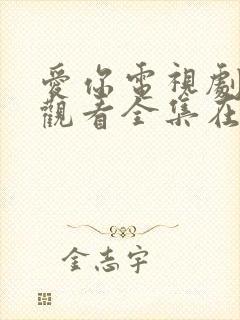 愛你電視劇
觀看全集在
金志宇